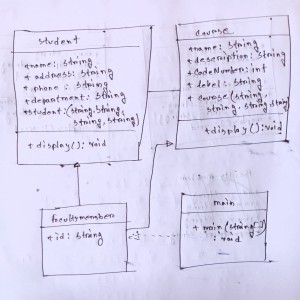 student
+name: string
+ address: string
+ phone : string
+department: string
+student:(string,string,
string, string)
+ display(): void
course
+name: string
+description: string
+CodeNumber: int
+ label: string
+ course(string,
string, string, string
+display():void
facultymember
+ id: string
main
+ main(string[])
: void